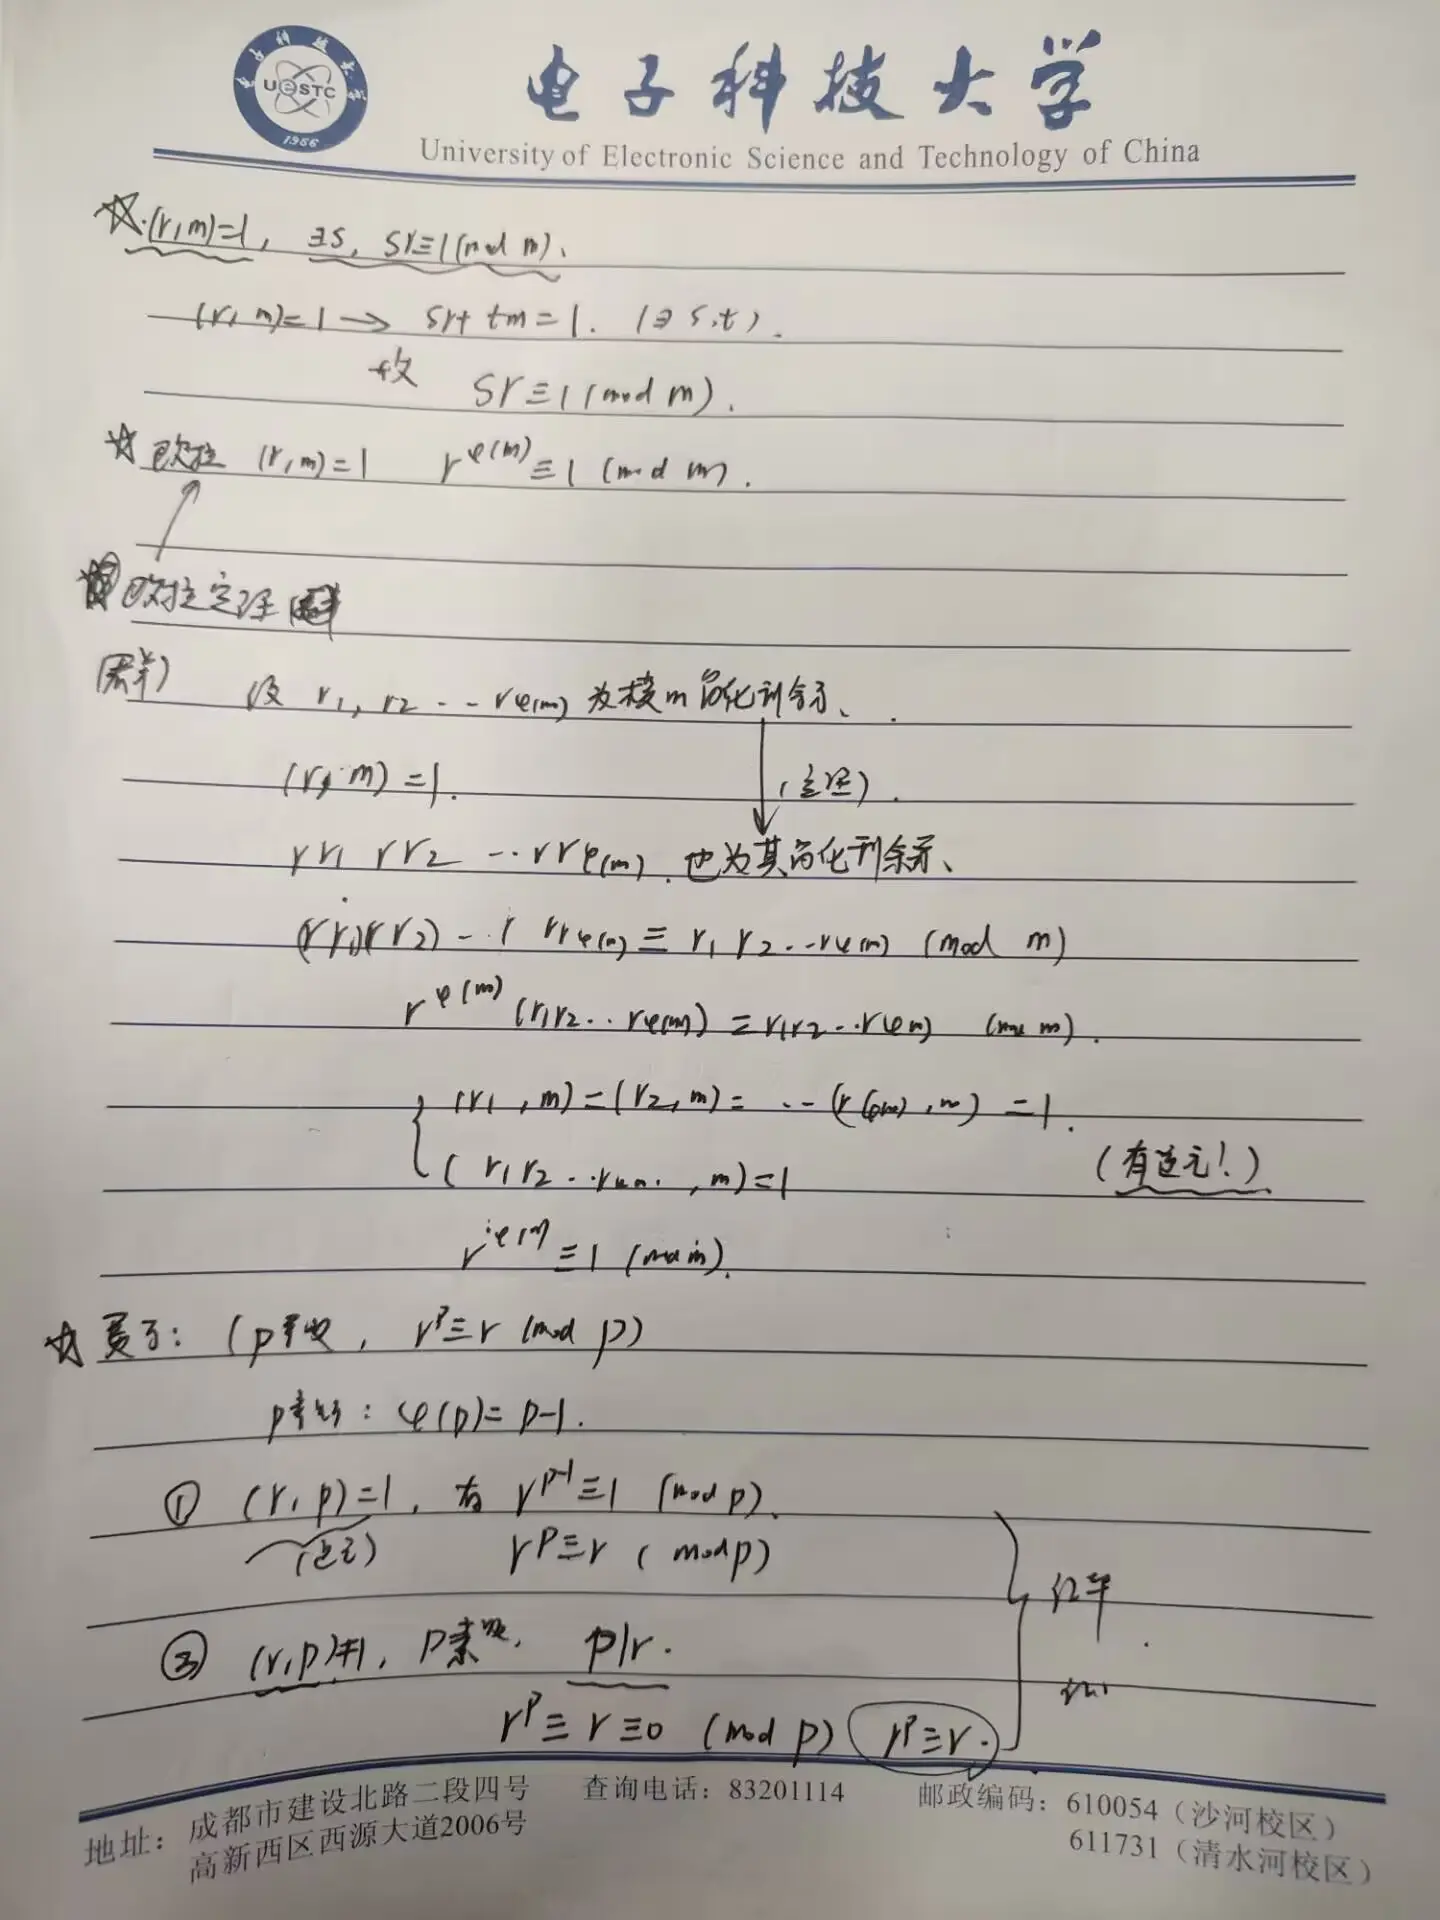 电子科技大学
UESTC
1956
电子科技大学
University of Electronic Science and Technology of China
☆.(r,m)=1, ∃s, sr≡1(mod m).
(r,m)=1 → sr+tm=1. (∃s,t).
故 sr≡1(mod m).
☆ 欧拉 (r,m)=1 r^φ(m)≡1 (mod m).
欧拉定理
设 r1, r2 ... rφ(m) 为模m简化剩余系、
(r, m)=1. (定理).
rr1 rr2 ... rrφ(m). 也为其简化剩余系、
(rr1)(rr2) ... rrφ(m) ≡ r1 r2 ... rφ(m) (mod m)
r^φ(m) (r1r2...rφ(m)) ≡ r1r2...rφ(m) (mod m).
(r1, m)=(r2, m)= ... (rφ(m), m) =1.
(r1r2...rφ(m), m)=1 (有逆元!)
r^φ(m) ≡1 (mod m).
☆ 费马: (p素数, r^p≡r (mod p)
p素数: φ(p)=p-1.
① (r,p)=1, 有 r^p-1≡1 (mod p).
r^p≡r (mod p)
② (r,p)≠1, p素数, p|r.
r^p≡r≡0 (mod p) r^p≡r.
地址: 成都市建设北路二段四号 查询电话: 83201114 邮政编码: 610054 (沙河校区)
高新西区西源大道2006号 611731 (清水河校区)